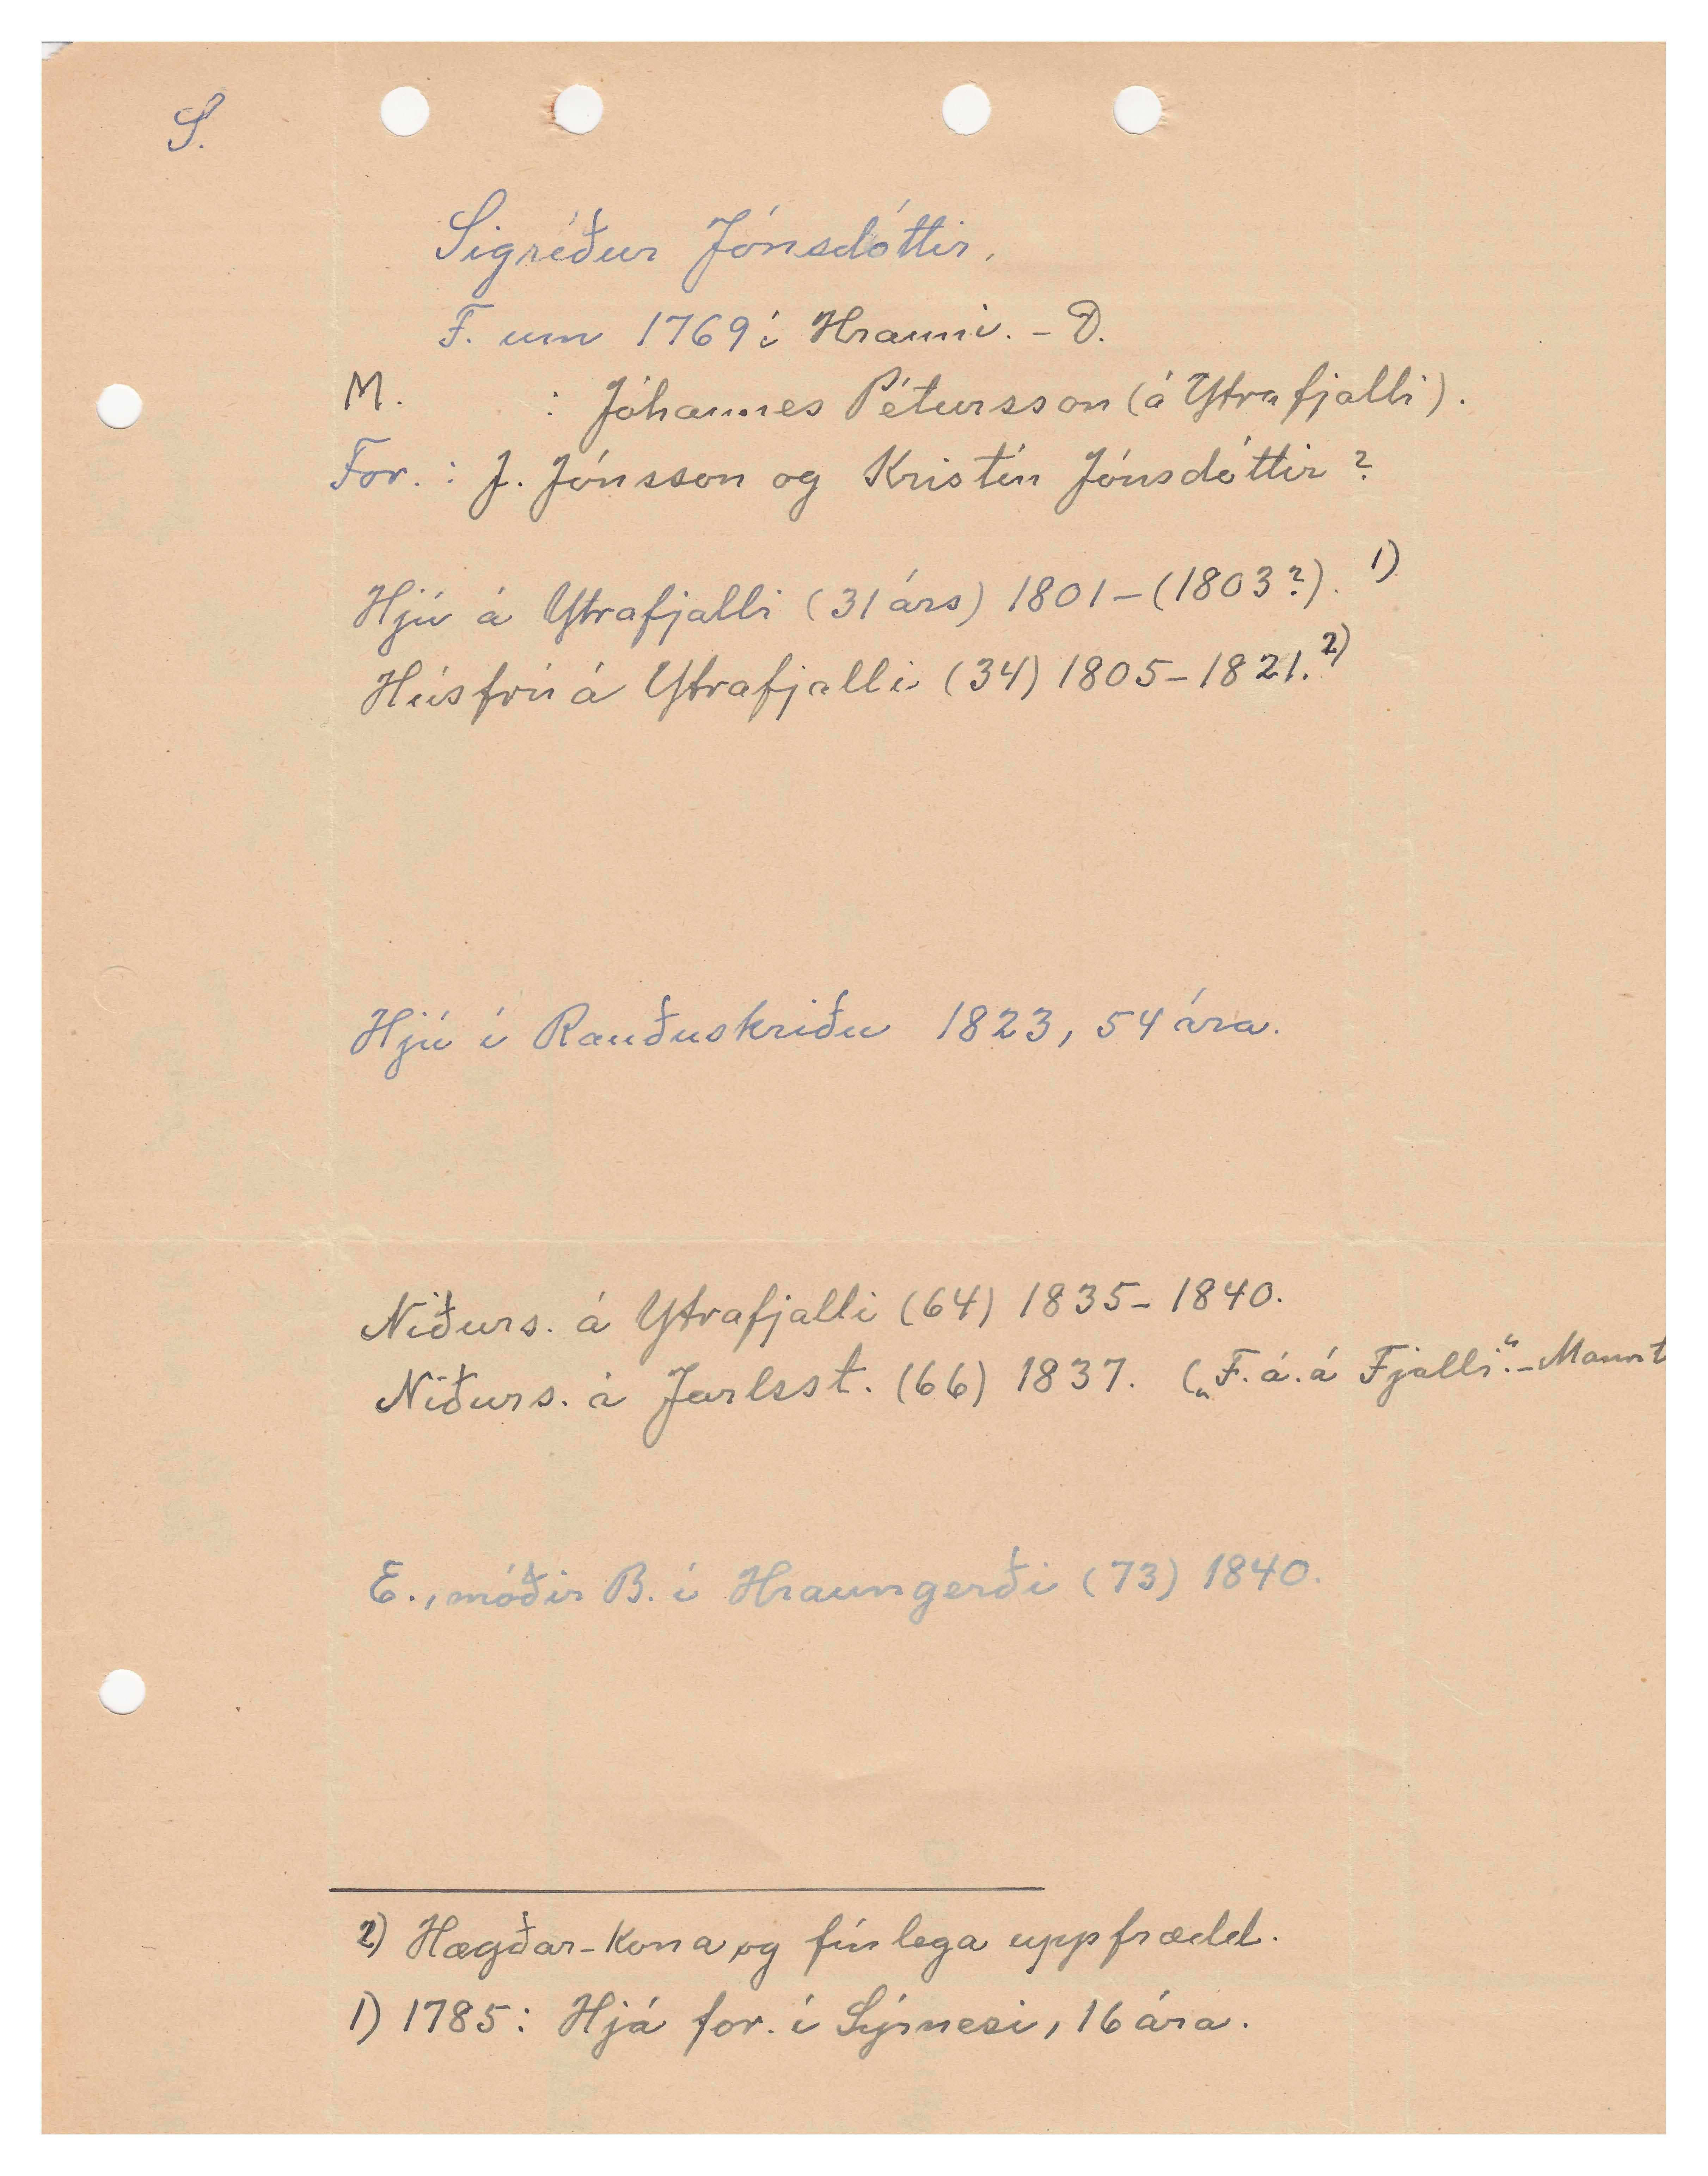 S.
Sigríður Jónsdóttir.
F. um 1769 í Hrauni. - D.
M. : Jóhannes Pétursson (á Ytrafjalli).
For. : J. Jónsson og Kristín Jónsdóttir ?
Hjú á Ytrafjalli (31 árs) 1801 - (1803?). 1)
Húsfrú á Ytrafjalli (34) 1805 - 1821. 2)
Hjú í Rauðuskriðu 1823, 54 ára.
Niðurs. á Ytrafjalli (64) 1835 - 1840.
Niðurs. á Jarlsst. (66) 1837. („F. á. á Fjalli“. -
E., móðir B. í Hraungerði (73) 1840.
2) Hægðar-kona og fínlega uppfrædd.
1) 1785: Hjá for. í Sýrnesi, 16 ára.